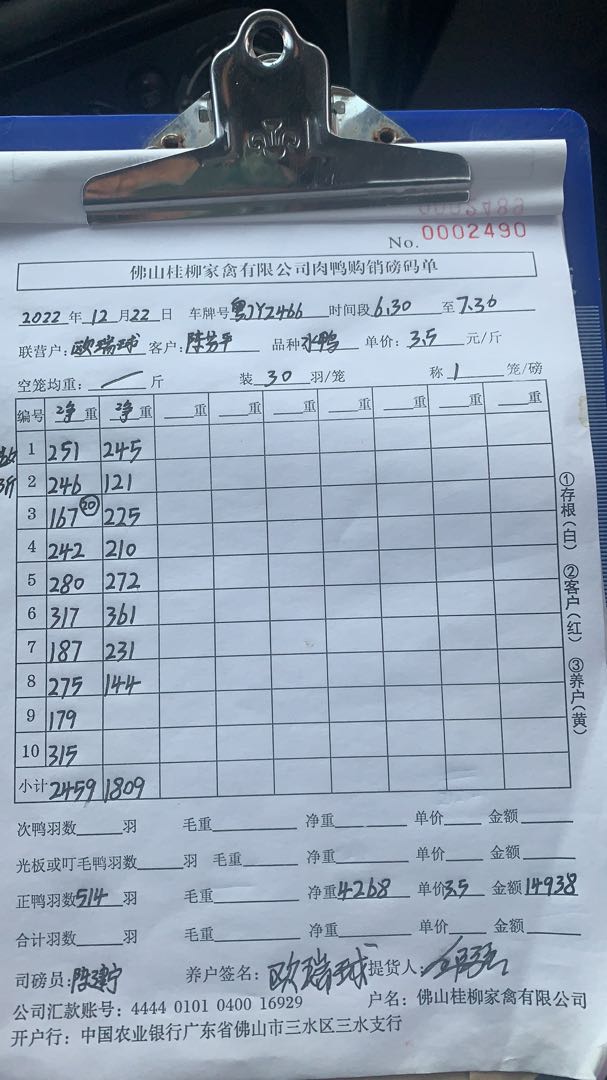 0002489
No. 0002490
佛山桂柳家禽有限公司肉鸭购销磅码单
2022年12月22日 车牌号粤JY2466 时间段6.30至7.30
联营户:欧瑞球 客户:陈芳平 品种水鸭 单价:3.5元/斤
空笼均重:/斤 装30羽/笼 称1笼/磅
编号 净重 净重 重 重 重 重 重 重
1 251 245
2 246 121
3 167 ⑳ 225
4 242 210
5 280 272
6 317 361
7 187 231
8 275 144
9 179
10 315
小计 2459 1809
①存根(白) ②客户(红) ③养户(黄)
次鸭羽数 羽 毛重 净重 单价 金额
光板或叮毛鸭羽数 羽 毛重 净重 单价 金额
正鸭羽数514羽 毛重 净重4268 单价3.5 金额14938
合计羽数 羽 毛重 净重 单价 金额
司磅员:陈建宁 养户签名:欧瑞球 提货人:
公司汇款账号:4444 0101 0400 16929 户名:佛山桂柳家禽有限公司
开户行:中国农业银行广东省佛山市三水区三水支行